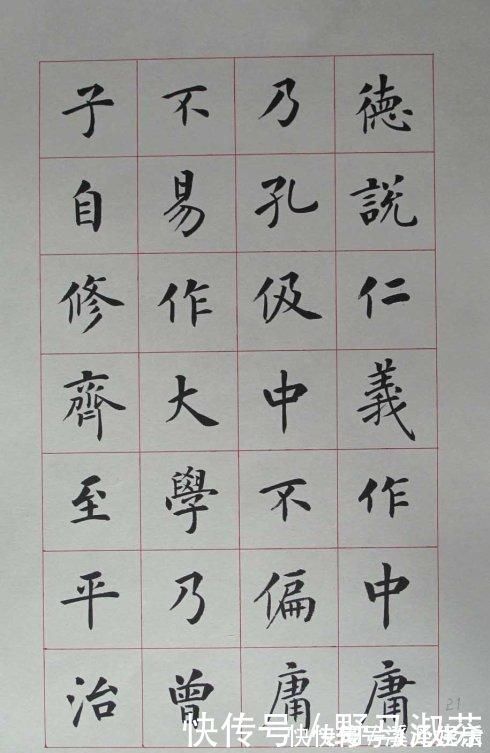 德說仁義作中庸
乃孔伋中不偏庸
不易作大學乃曾
子自修齊至平治
21
快传号 /